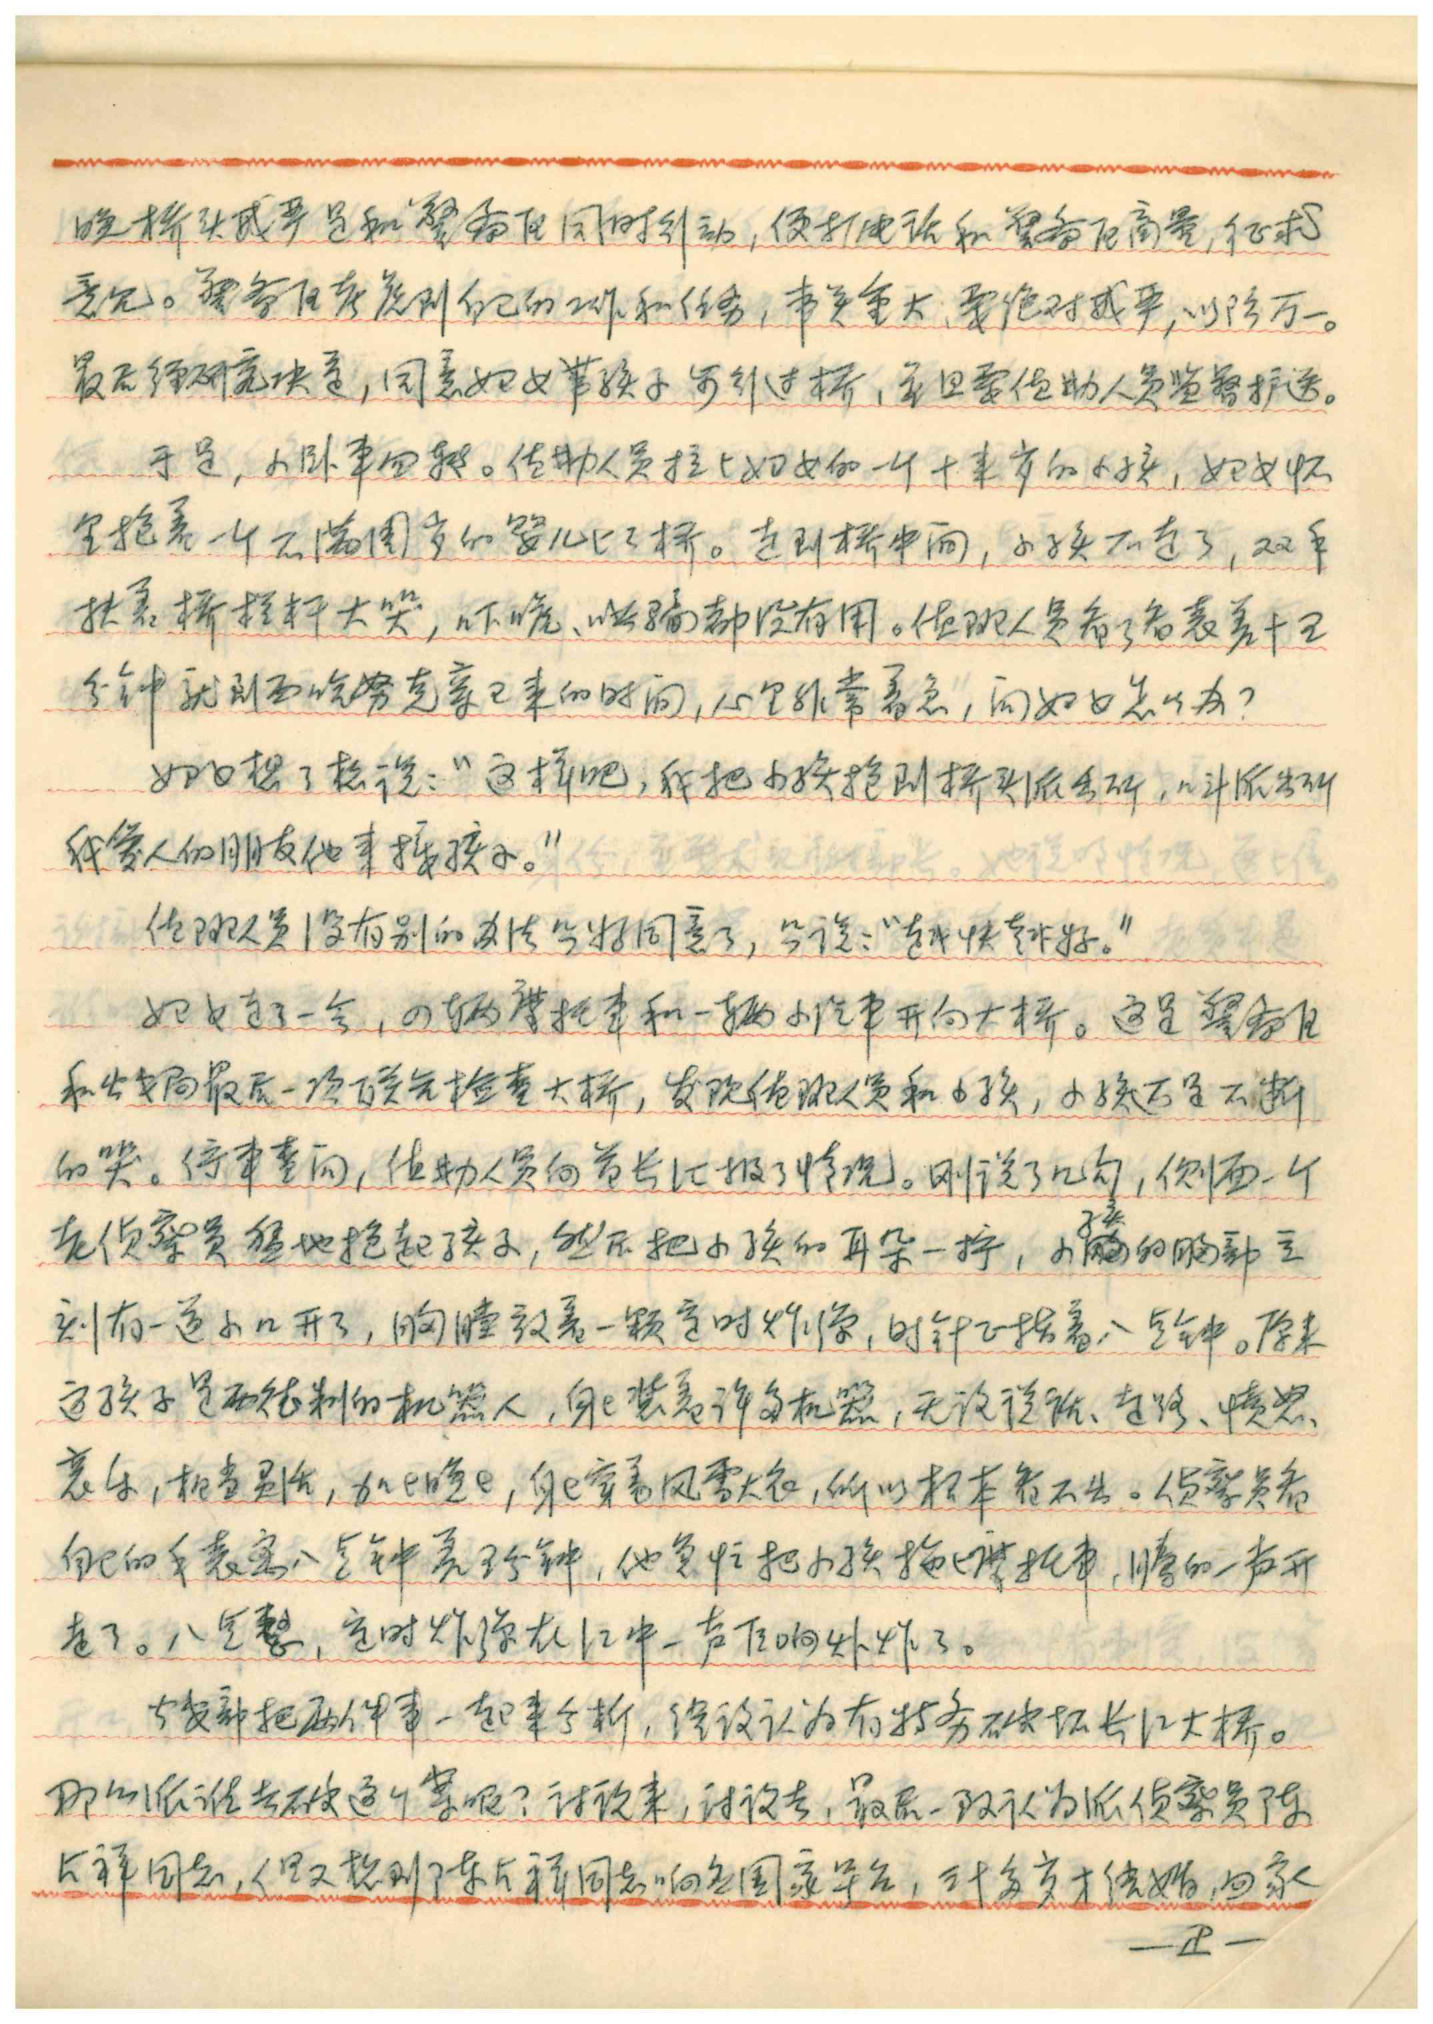 晚桥头戒严是和警备区同时行动，便打电话和警备区商量，征求
意见。警备区考虑到自己的工作和任务，事关重大，要绝对戒严，以防万一。
最后经研究决定，同意妇女带孩子步行过桥，并且要值勤人员监督护送。
于是，小卧车回转。值勤人员拉上妇女的一个十来岁的小孩，妇女怀
里抱着一个不满周岁的婴儿上了桥。走到桥中间，小孩不走了，双手
扶着桥栏杆大哭，吓唬、哄骗都没有用。值班人员看了看表差十五
分钟就到西哈努克亲王来的时间，心里非常着急，问妇女怎么办？
妇女想了想说：“这样吧，我把小孩抱到桥头派出所，叫派出所
我爱人的朋友他来接孩子。”
值班人员没有别的办法只好同意了，只说：“越快越好。”
妇女走了一会，四辆摩托车和一辆小汽车开向大桥。这是警备区
和公安局最后一次首先检查大桥，发现值班人员和小孩，小孩还是不断
的哭。停车查问，值勤人员向首长汇报了情况。刚说了几句，侧面一个
老侦察员猛地抱起孩子，然后把小孩的耳朵一拧，小孩的胸部立
刻有一道小口开了，胸膛放着一颗定时炸弹，时针正指着八点钟。原来
这孩子是西德制的机器人，身上装着许多机器，无论说话、走路、愤怒、
哀乐，相当灵活，加上晚上，身上穿着风雪大衣，所以根本看不出。侦察员看
自己的手表离八点钟差五分钟，他急忙把小孩拖上摩托车，腾的一声开
走了。八点整，定时炸弹在江中一声巨响爆炸了。
公安部把两件事一起来分析，结论认为有特务破坏长江大桥。
那么派谁去破这个案呢？讨论来，讨论去，最后一致认为派侦察员陈
占祥同志，但又想到陈占祥同志响应国家号召，三十多岁才结婚，回家